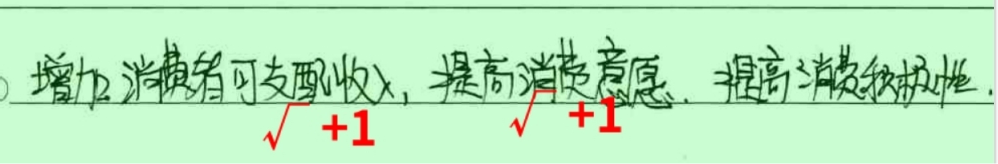 增加消费者可支配收入，提高消费意愿．提高消费积极性．
√ +1 √ +1